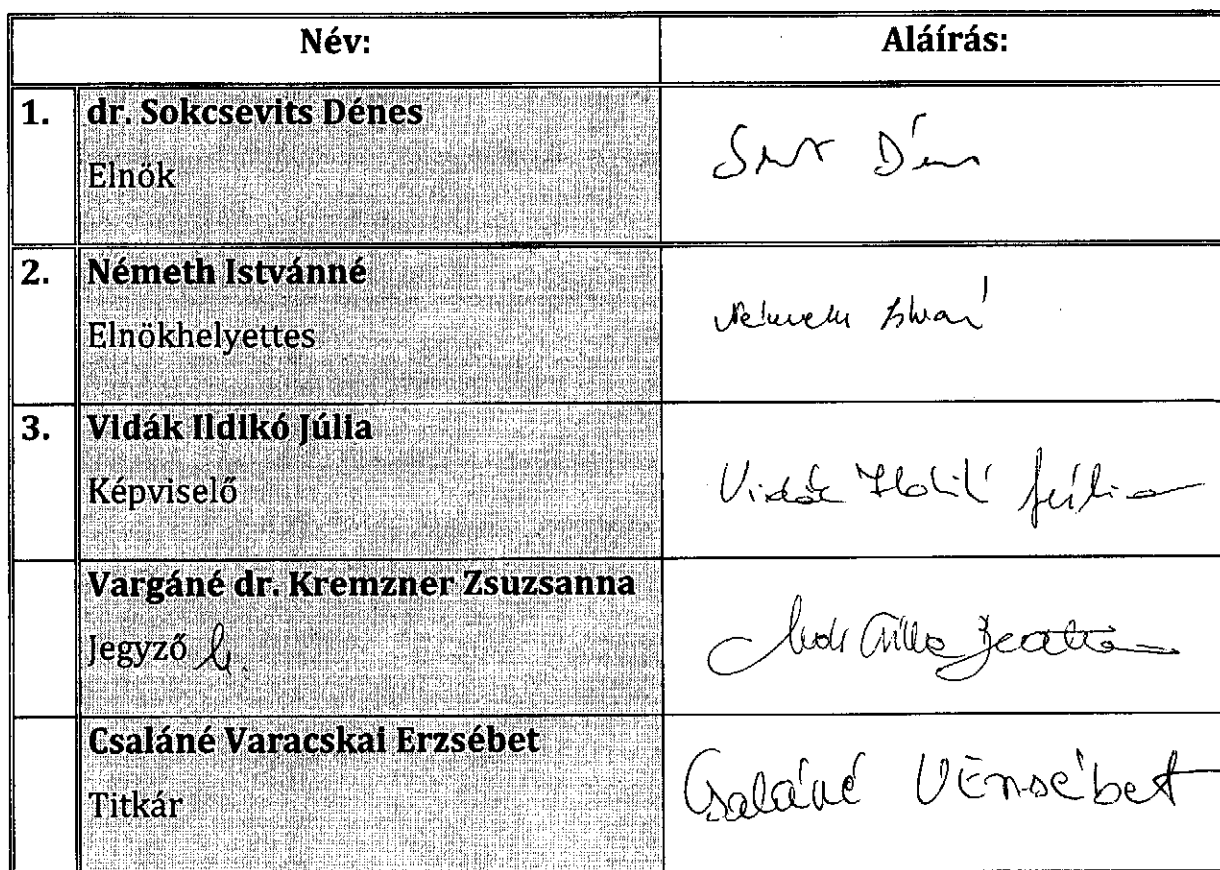 Név: Aláírás:
1. dr. Sokcsevits Dénes
Elnök
2. Németh Istvánné
Elnökhelyettes
3. Vidák Ildikó Júlia
Képviselő
Vidák Ildikó Júlia
Vargáné dr. Kremzner Zsuzsanna
Jegyző h.
Csaláné Varacskai Erzsébet
Titkár
Csaláné VErzsébet